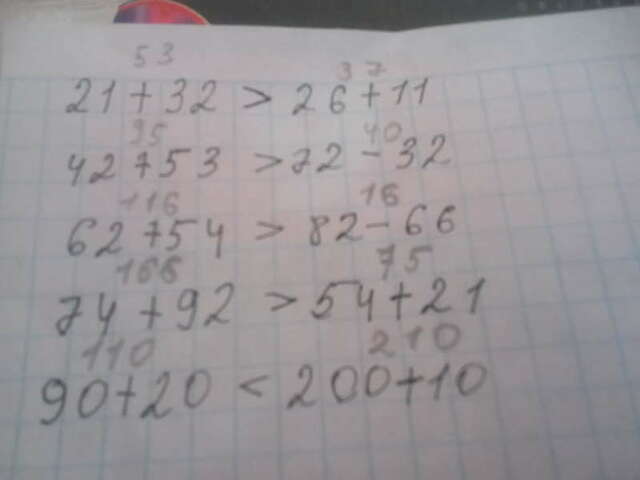 53 37
21+32 > 26+11
95 40
42+53 > 72-32
116 16
62+54 > 82-66
166 75
74+92 > 54+21
110 210
90+20 < 200+10